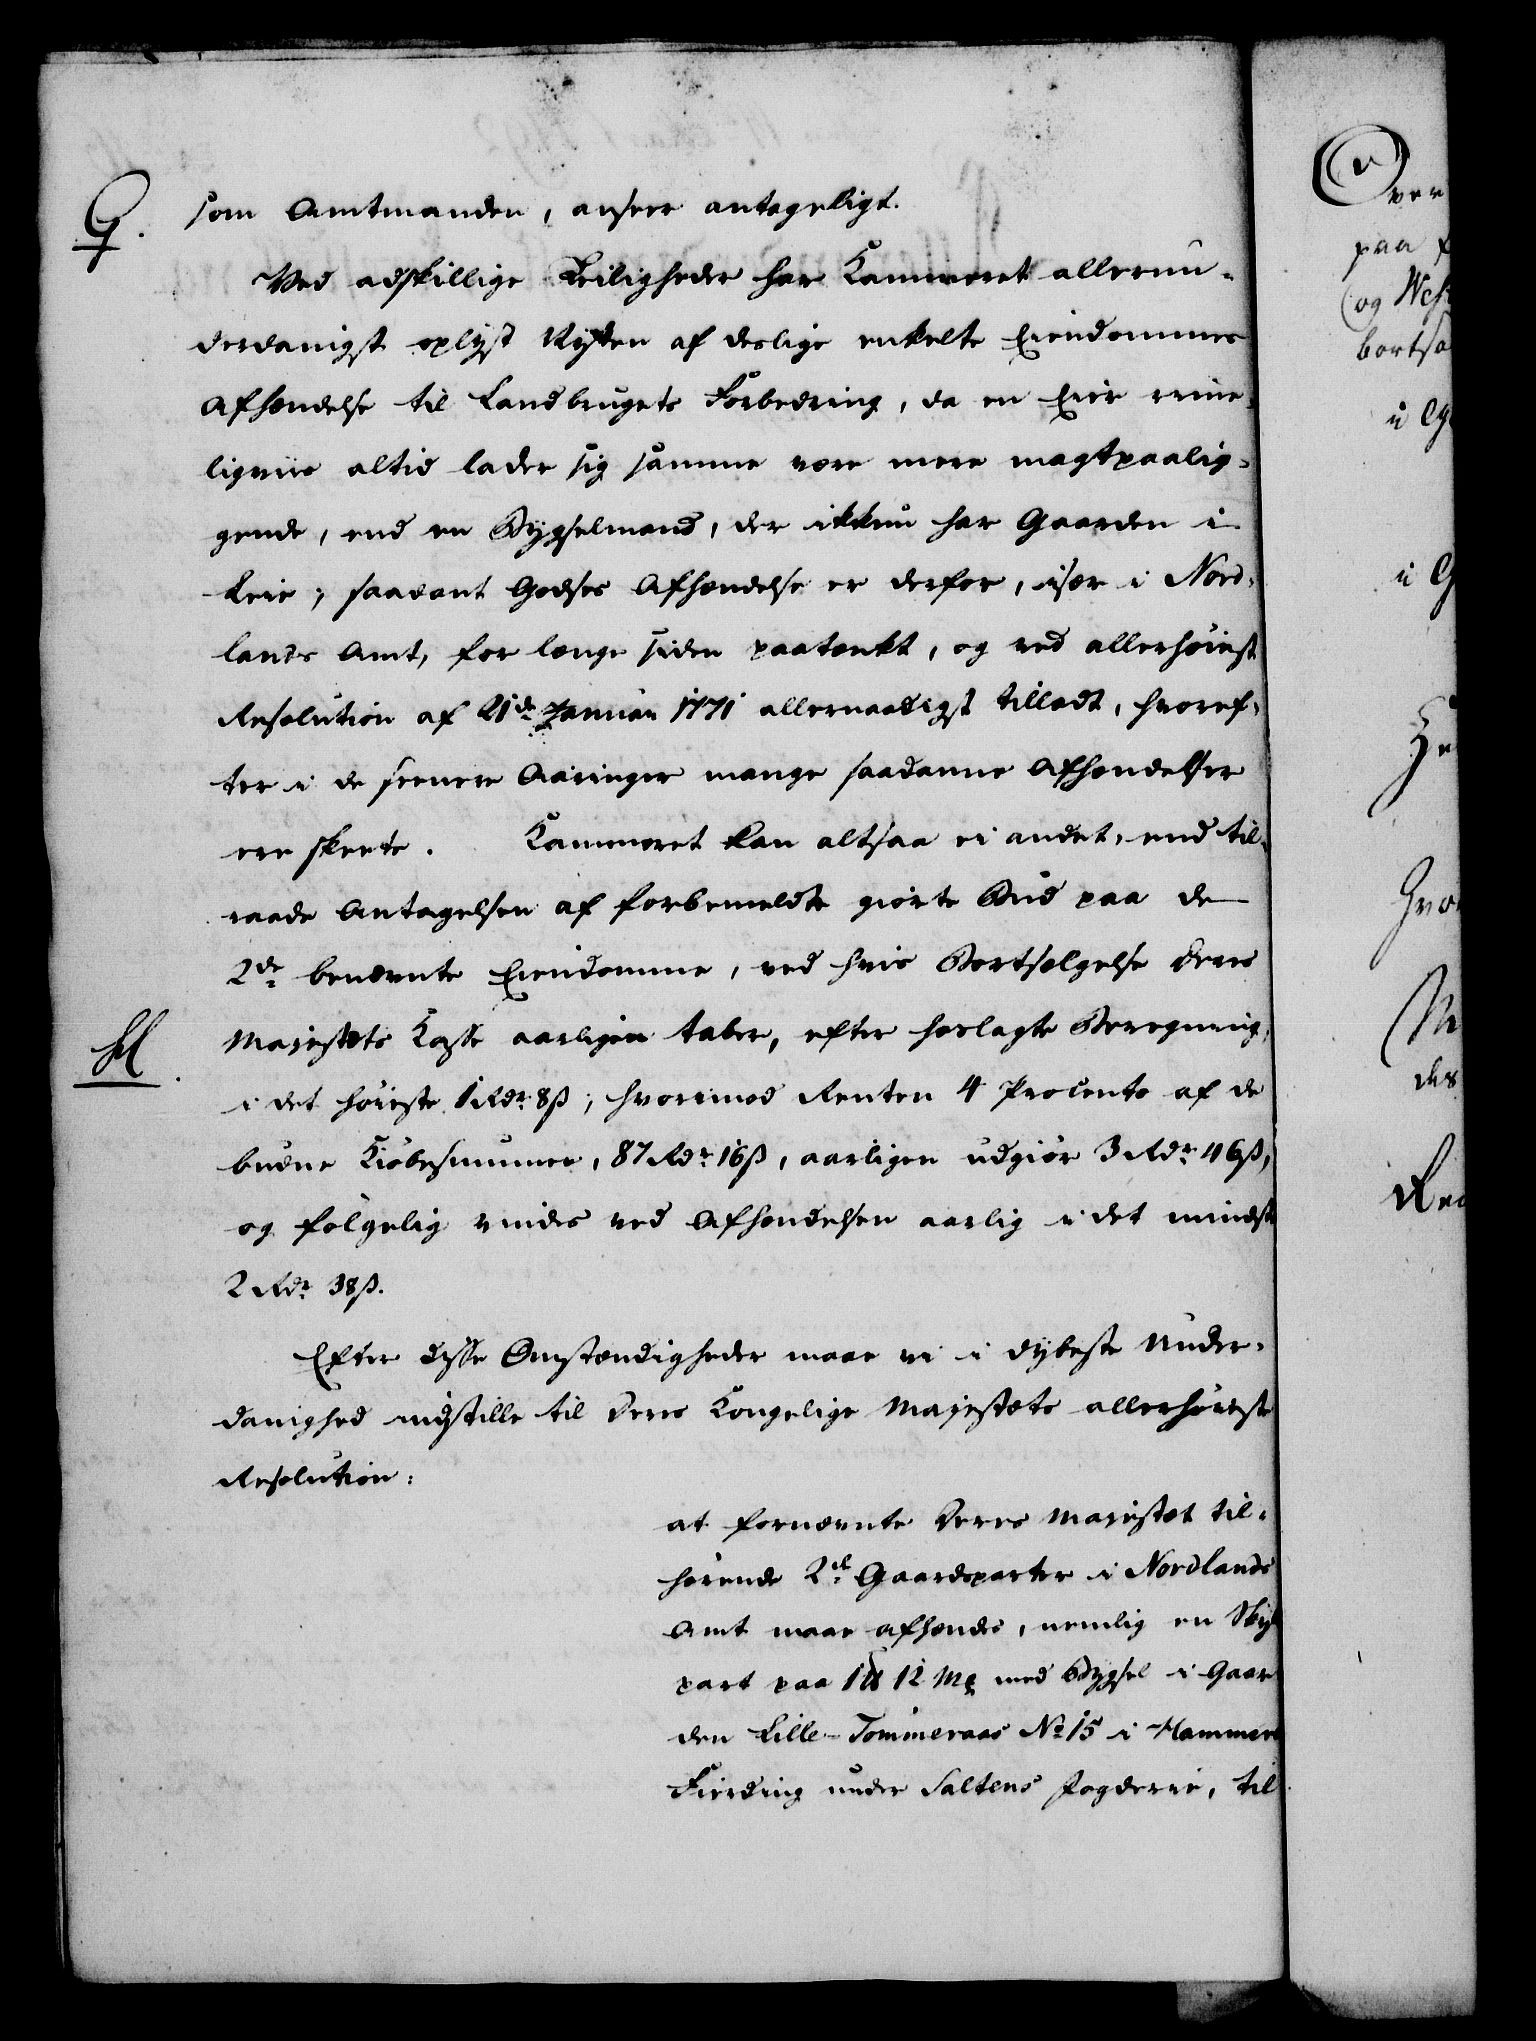 G. som Amtmanden, anseer antageligt.
Ved adskillige Leiligheder har Kammeret allerun-
derdanigst oplyst Nytten af deslige enkelte Eiendommes
Afhændelse til Landbrugets Forbedring, da en Eier rime-
ligviis altid lader sig samme være mere magtpaalig-
gende, end en Bygselmand, der ikkun har Gaarden i
Leie; saadant Godses Afhændelse er derfor, især i Nord-
lands Amt, for længe siden paatænkt, og ved allerhøieste
Resolution af 21de Januar 1771 allernaadigst tilladt, hvoref-
ter i de seenere Aaringer mange saadanne Afhændelser
ere skeete. Kammeret kan altsaa ei andet, end til-
raade Antagelsen af forbemeldte giorte Bud paa de
2de benævnte Eiendomme, ved hvis Bortsælgelse Deres
H. Majestæts Kasse aarligen taber, efter hoslagte Beregning,
i det høieste 1 Rdr 8 ß; hvorimod Renten 4 Procento af de
budne Kiøbesummer, 87 Rdr 16 ß, aarligen udgiør 3 Rdr 46 ß,
og følgelig vindes ved Afhændelsen aarlig i det mindste
2 Rdr 38 ß.
Efter disse Omstændigheder maae vi i dybeste Under-
danighed indstille til Deres Kongelige Majestæts allerhøieste
Resolution:
at fornævnte Deres Majestæt til-
hørende 2de Gaardsparter i Nordlands
Amt maae afhændes, nemlig en
part paa 1 12 Mk med Bygsel i Gaar
den Lille-Tømmeraas No 15 i Hammerø
Fierding under Saltens Fogderie, til
ver
paa
og
bortsæ
i
i
des